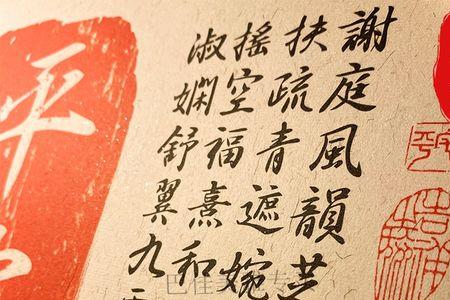 謝庭風韻芝
扶疏青遮婉
搖空福熹和
淑嫻舒翼九
平